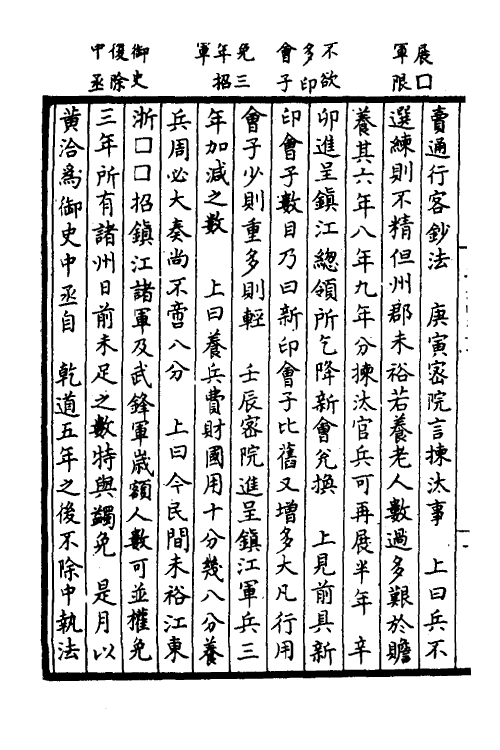 展囗
軍限
不欲
多印
會子
免三
年招
軍
御史
復除
中丞
賣通行客鈔法　庚寅宻院言揀汰事　上曰兵不
選練則不精但州郡未裕若養老人數過多艱於贍
養其六年八年九年分揀汰官兵可再展半年　辛
卯進呈鎮江總領所乞降新會兊換　上見前具新
印會子數目乃曰新印會子比舊又增多大凡行用
會子少則重多則輕　壬辰宻院進呈鎮江軍兵三
年加減之數　上曰養兵費財國用十分幾八分養
兵周必大奏尚不啻八分　上曰今民間未裕江東
浙囗囗招鎮江諸軍及武鋒軍嵗額人數可並權免
三年所有諸州日前未足之數特與蠲免　是月以
黄洽為御史中丞自　乾道五年之後不除中執法